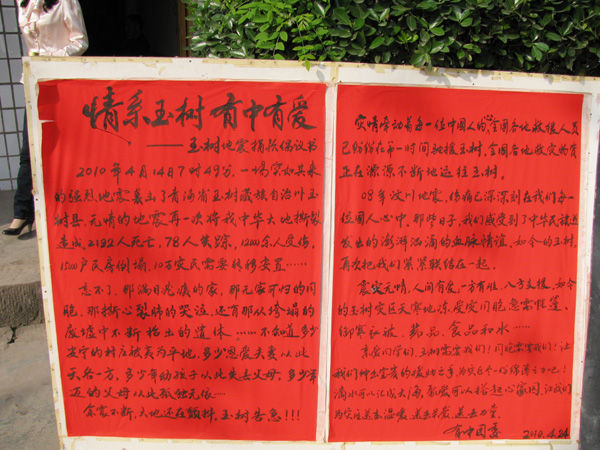 情系玉树 有中有爱
——玉树地震捐款倡议书
2010年4月14日7时49分,一场突如其来
的强烈地震袭击了青海省玉树藏族自治州玉
树县。无情的地震再一次将我中华大地撕裂
造成2192人死亡,78人失踪,12000余人受伤,
15000户民房倒塌,10万灾民需要转移安置……
忘不了,那满目疮痍的家,那无家可归的同
胞,那撕心裂肺的哭泣,还有那从垮塌的
废墟中不断抬出的遗体……不知道多少
安宁的村庄被夷为平地,多少恩爱夫妻从此
天各一方,多少年幼孩子从此失去父母,多少年
迈的父母从此孤独无依…
余震不断,大地还在颤抖,玉树告急!!!
灾情牵动着每一位中国人的心,全国各地救援人员
已纷纷在第一时间驰援玉树,全国各地救灾物资
正在源源不断地运往玉树。
08年汶川地震,伤痛已深深刻在我们每一
位国人心中。那些日子,我们感受到了中华民族
发出的澎湃汹涌的血脉情谊,如今的玉树,
再次把我们紧紧联结在一起。
震灾无情,人间有爱,一方有难,八方支援,如今
的玉树灾区天寒地冻,受灾同胞急需帐篷、
御寒衣被、药品、食品和水……
亲爱的同学们,玉树需要我们!同胞需要我们!让
我们伸出宝贵的援助之手为灾区尽一份绵薄之力吧!
滴水可以汇成大海,
为灾区送去温暖,送去关爱,送去力量。
有中团委 2010.4.24